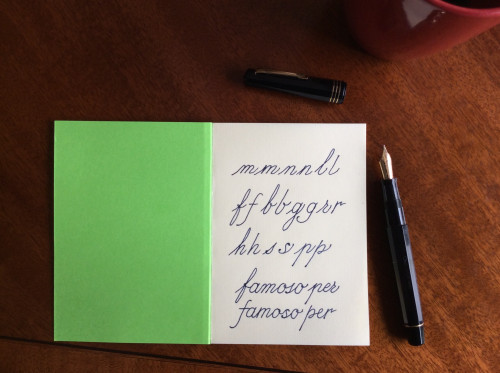 mmnnll
ffbbggrr
hhsspp
famoso per
famoso per